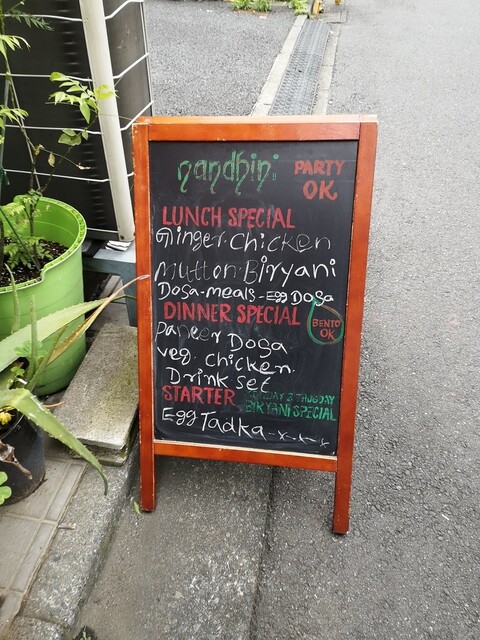 nandhini
PARTY
OK
LUNCH SPECIAL
Ginger Chicken
Mutton Biryani
Dosa-meals-Egg Dosa
DINNER SPECIAL
BENTO
OK
Paneer Dosa
veg. chicken.
Drink Set
STARTER
& THUSDAY
BIRYANI SPECIAL
Egg Tadka